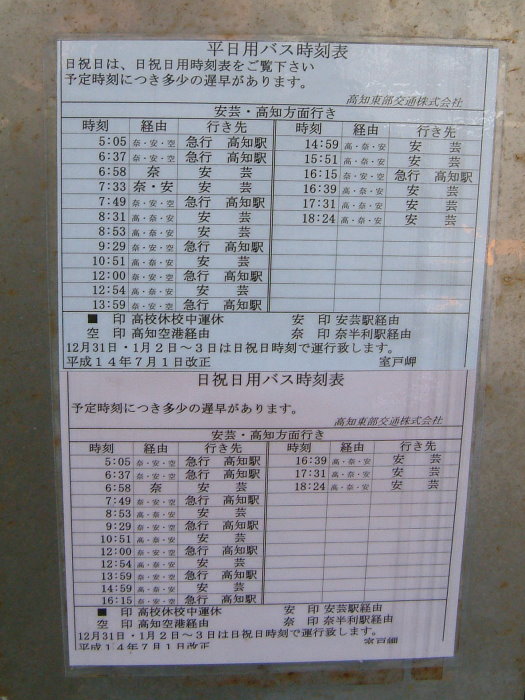 平日用バス時刻表
日祝日は、日祝日用時刻表をご覧下さい
予定時刻につき多少の遅早があります。
高知東部交通株式会社
安芸・高知方面行き
時刻 経由 行き先 時刻 経由 行き先
5:05 奈・安・空 急行 高知駅 14:59 高・奈・安 安 芸
6:37 奈・安・空 急行 高知駅 15:51 高・奈・安 安 芸
6:58 奈 安 芸 16:15 奈・安・空 急行 高知駅
7:33 奈・安 安 芸 16:39 高・奈・安 安 芸
7:49 奈・安・空 急行 高知駅 17:31 高・奈・安 安 芸
8:31 高・奈・安 安 芸 18:24 高・奈・安 安 芸
8:53 高・奈・安 安 芸
9:29 奈・安・空 急行 高知駅
10:51 高・奈・安 安 芸
12:00 奈・安・空 急行 高知駅
12:54 高・奈・安 安 芸
13:59 奈・安・空 急行 高知駅
■ 印 高校休校中運休 安 印 安芸駅経由
空 印 高知空港経由 奈 印 奈半利駅経由
12月31日・1月2日~3日は日祝日時刻で運行致します。
平成14年7月1日改正 室戸岬
日祝日用バス時刻表
予定時刻につき多少の遅早があります。
高知東部交通株式会社
安芸・高知方面行き
時刻 経由 行き先 時刻 経由 行き先
5:05 奈・安・空 急行 高知駅 16:39 高・奈・安 安 芸
6:37 奈・安・空 急行 高知駅 17:31 高・奈・安 安 芸
6:58 奈 安 芸 18:24 高・奈・安 安 芸
7:49 奈・安・空 急行 高知駅
8:53 高・奈・安 安 芸
9:29 奈・安・空 急行 高知駅
10:51 高・奈・安 安 芸
12:00 奈・安・空 急行 高知駅
12:54 高・奈・安 安 芸
13:59 奈・安・空 急行 高知駅
14:59 高・奈・安 安 芸
16:15 奈・安・空 急行 高知駅
■ 印 高校休校中運休 安 印 安芸駅経由
空 印 高知空港経由 奈 印 奈半利駅経由
12月31日・1月2日~3日は日祝日時刻で運行致します。
平成14年7月1日改正 室戸岬